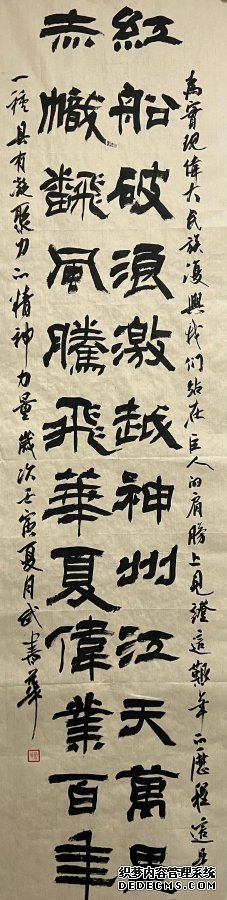 為實現偉大民族復興我們站在巨人的肩膀上見證這艱辛的歷程這是
紅船破浪激越神州江天萬里
赤幟飜風騰飛華夏偉業百年
一種具有凝聚力的精神力量歲次壬寅夏月武書華
织梦内容管理系统
DEDECMS.COM